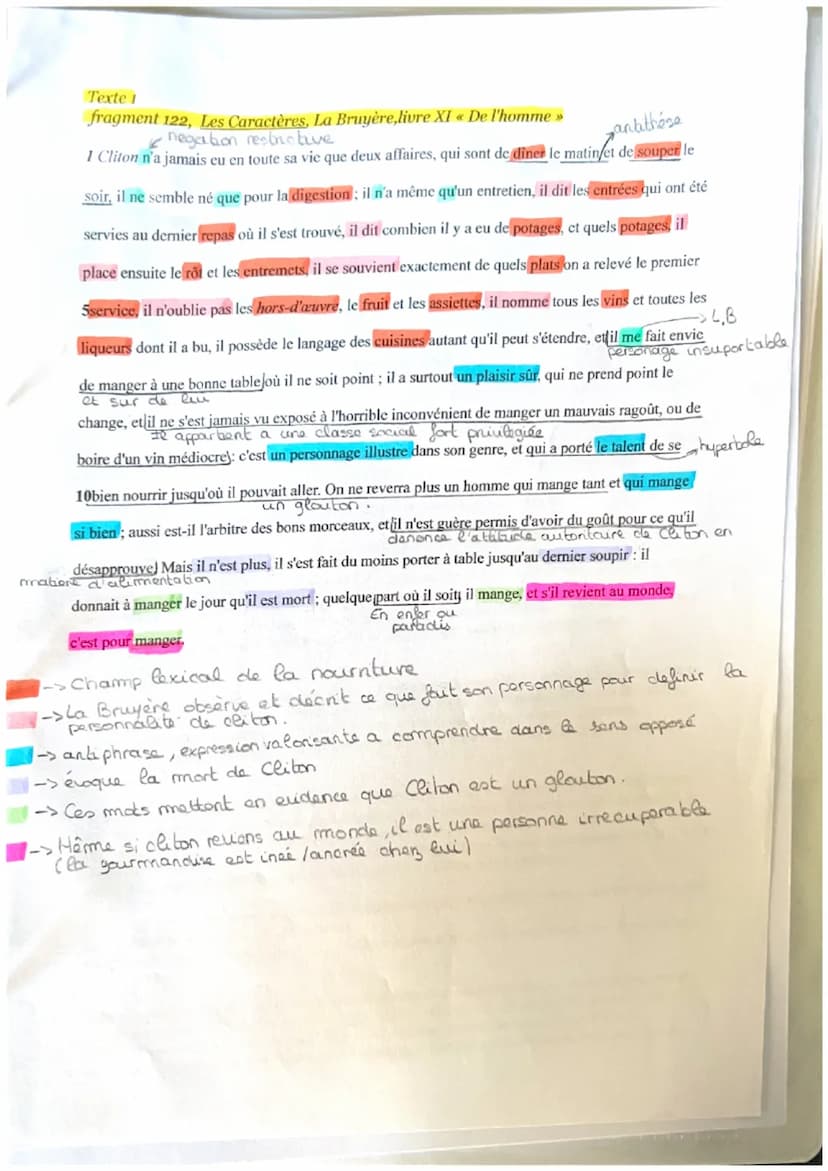 Texte 1
fragment 122, Les Caractères, La Bruyère,livre XI « De l'homme »
negation restrictive
antithése
1 Cliton n'a jamais eu en toute sa vie que deux affaires, qui sont de dîner le matin et de souper le
soir, il ne semble né que pour la digestion ; il n'a même qu'un entretien, il dit les entrées qui ont été
servies au dernier repas où il s'est trouvé, il dit combien il y a eu de potages, et quels potages, il
place ensuite le rôt et les entremets, il se souvient exactement de quels plats on a relevé le premier
5service, il n'oublie pas les hors-d'œuvre, le fruit et les assiettes, il nomme tous les vins et toutes les
L,B
liqueurs dont il a bu, il possède le langage des cuisines autant qu'il peut s'étendre, et il me fait envie
personage insuportable
de manger à une bonne table où il ne soit point ; il a surtout un plaisir sûr, qui ne prend point le
et sur de lui
change, et il ne s'est jamais vu exposé à l'horrible inconvénient de manger un mauvais ragoût, ou de
Il appartient a une classe social fort priviligiée
boire d'un vin médiocre : c'est un personnage illustre dans son genre, et qui a porté le talent de se
hyperbole
10bien nourrir jusqu'où il pouvait aller. On ne reverra plus un homme qui mange tant et qui mange
un glouton.
si bien ; aussi est-il l'arbitre des bons morceaux, et il n'est guère permis d'avoir du goût pour ce qu'il
dénonce l'attitude autoritaire de Cliton en
désapprouve. Mais il n'est plus, il s'est fait du moins porter à table jusqu'au dernier soupir : il
matiere d'alimentation
donnait à manger le jour qu'il est mort ; quelque part où il soit, il mange, et s'il revient au monde,
En enfer ou
paradis
c'est pour manger.
-> Champ lexical de la nourriture
-> La Bruyère observe et décrit ce que fait son personnage pour definir la
personnalité de cliton.
-> antiphrase, expression valorisante a comprendre dans le sens opposé
-> évoque la mort de Cliton
-> Ces mots mettent en evidence que Cliton est un glouton.
-> Même si cliton reviens au monde, il est une personne irrecuperable
(la gourmandise est inée /ancrée chez lui)